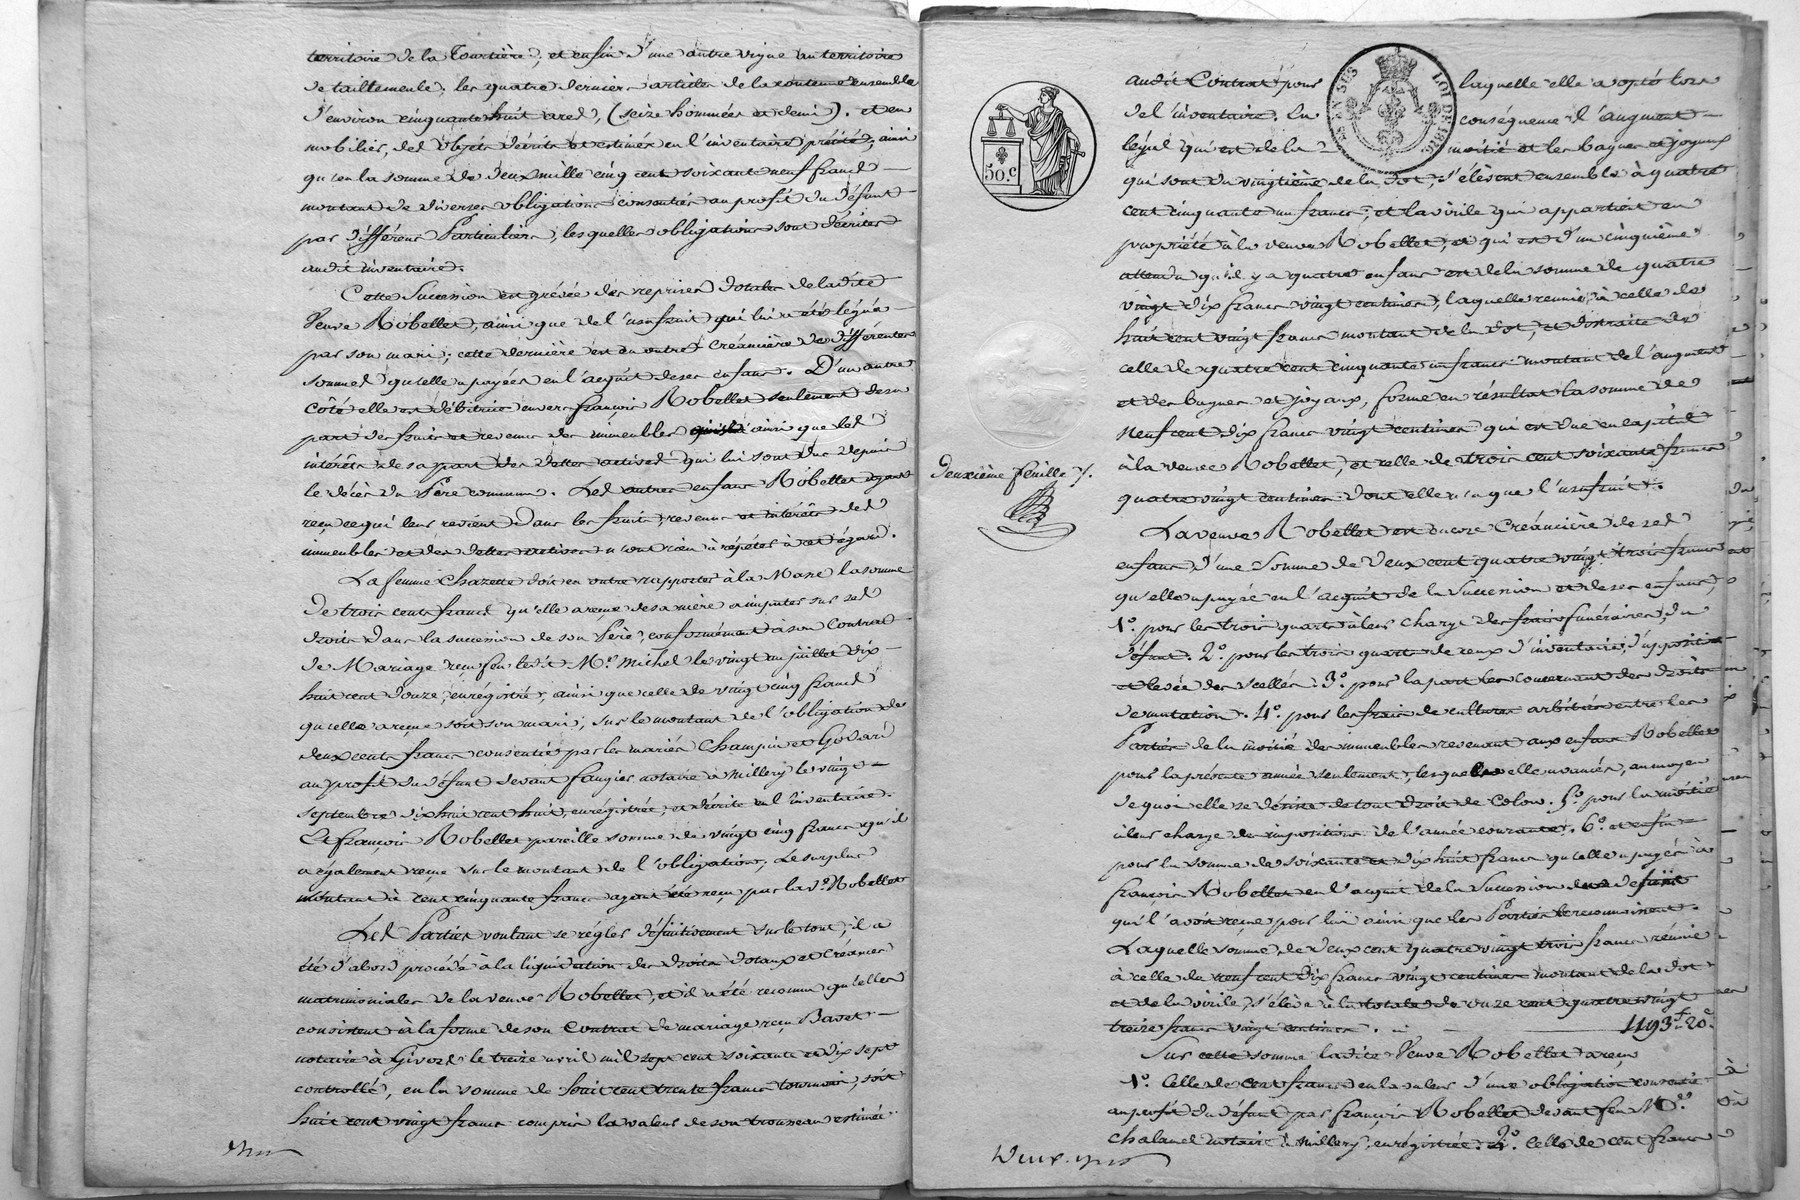 territoire de la Tourtière, et enfin d'une autre vigne au territoire
de taillemeule, les quatre derniers articles de la contenue ensemble
d'environ cinquante huit ares, (seize hommées et demi). et en
mobilier, des objets décrits et estimés en l'inventaire précité, ainsi
qu'en la somme de deux mille cinq cent soixante neuf francs
montant de diverses obligations consenties au profit du défunt
par différens Particuliers, lesquelles obligations sont décrites
audit inventaire.
Cette Succession est grévée des reprises dotales de ladite
Veuve Robellet, ainsi que de l'usufruit qui lui a été légué
par son mari; cette dernière est en outre créancière de différentes
sommes qu'elle a payées en l'acquit de ses enfans. D'un autre
côté elle est débitrice envers françois Robellet seulement de sa
part des fruits et revenus des immeubles ainsi que des
intérêts de sa part des dettes actives qui lui sont dus depuis
le décès du Père commun. Les autres enfans Robellet ayant
reçu ce qui leur revient dans les fruits, revenus et intérêts des
immeubles et des dettes actives n'ont rien à répéter à cet égard.
La femme Chazette doit en outre rapporter à la Masse la somme
de trois cents francs qu'elle a reçue de sa mère à imputer sur ses
droits dans la succession de son Père, conformément à son Contrat
de Mariage reçu feu ledit Me Michel le vingt un juillet dix
huit cent douze, enrégistré, ainsi que celle de vingt cinq francs
qu'elle a reçue soit son mari, sur le montant de l'obligation de
deux cents francs consentie par les mariés Champin et Godard
au profit du défunt devant faugier notaire à Millery le vingt
septembre dix huit cent huit, enrégistrée, et décrite en l'inventaire.
Et françois Robellet pareille somme de vingt cinq francs qu'il
a également reçue sur le montant de l'obligation, Le surplus
montant à cent cinquante francs ayant été reçu par la Ve Robellet
Les Parties voulant se régler définitivement sur le tout, il a
été d'abord procédé à la liquidation des droits dotaux et créances
matrimoniales de la veuve Robellet, et il a été reconnu qu'elles
consistent à la forme de son Contrat de mariage reçu
notaire à Givors le treize avril mil sept cent soixante et dix sept
controllé, en la somme de huit cent trente francs tournois, soit
huit cent vingt francs compris la valeur de son trousseau estimée
audit Contrat, pour laquelle elle a opté lors
de l'inventaire. En conséquence l'augment
légal qui est de la moitié et les bagues et joyaux
qui sont du vingtième de la dot, s'élèvent ensemble à quatre
cent cinquante un francs, et la virile qui appartient en
propriété à la veuve Robellet, et qui est d'un cinquième
attendu qu'il y a quatre enfans est de la somme de quatre
vingt dix francs vingt centimes, laquelle reunie à celle de
huit cent vingt francs montant de la dot, et distraite de
celle de quatre cent cinquante un francs montant de l'augment
et des bagues et joyaux, forme en résultat la somme de
Neuf cent dix francs vingt centimes qui est due en capital
à la veuve Robellet, et celle de trois cent soixante francs
quatre vingt centimes dont elle n'a que l'usufruit.
La veuve Robellet est encore créancière de ses
enfans d'une Somme de deux cent quatre vingt trois francs
qu'elle a payée en l'acquit de la Succession et de ses enfans,
1o. pour les trois quarts à leur charge des frais funéraires du
défunt. 2o. pour les trois quarts de ceux d'inventaire, d'apposition
et levée des scellés. 3o. pour la part les concernant des droits
de mutation. 4o. pour les frais de culture arbitrés entre les
Parties de la moitié des immeubles revenant aux enfans Robellet
pour la présente année seulement, lesquels elle a avancés, au moyen
de quoi elle se désiste de tout droit de Colon. 5o. pour la moitié
à leur charge des impositions de l'année courante. 6o. et enfin
pour la somme de soixante et dix huit francs qu'elle a payée à
françois Robellet en l'acquit de la Succession du défunt
qui l'avoit reçue pour lui ainsi que les Parties le reconnoissent.
Laquelle somme de deux cent quatre vingt trois francs réunie
à celle de neuf cent dix francs vingt centimes montant de la dot
et de la virile, s'élève à la totale de onze cent quatre vingt
treize francs vingt centimes. 1193f. 20c.
Sur cette somme ladite Veuve Robellet a reçu
1o. Celle de cent francs en la valeur d'une obligation consentie
au profit du défunt par françois Robellet devant feu Me
Chalamel notaire à Millery, enrégistrée. 2o. Celle de cent francs
50.c
AN SUS
LOI DE 1816
deuxième feuille